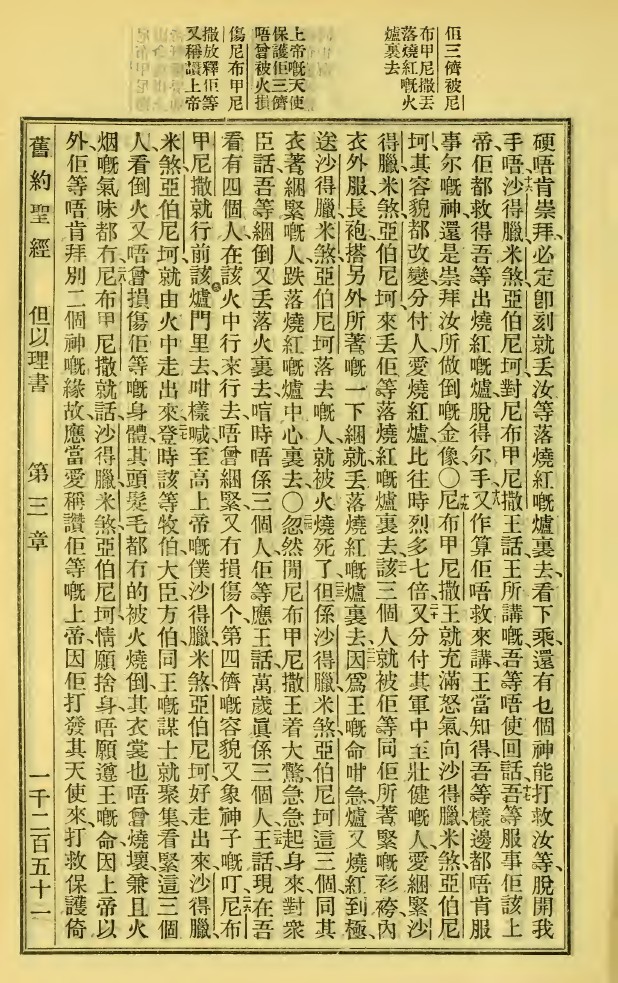 佢三儕被尼
布甲尼撒丟
落燒紅嘅火
爐裏去
上帝嘅天使
保護佢三儕
唔曾被火損
傷尼布甲尼
撒放釋佢等
又稱讚上帝
硬唔肯崇拜、必定卽刻就丟汝等落燒紅嘅爐裏去、看下乘、還有乜個神能打救汝等、脫開我
手唔、十六沙得臘、米煞、亞伯尼坷、對尼布甲尼撒王話、王所講嘅、吾等唔使回話、十七吾等服事佢該上
帝、佢都救得吾等出燒紅嘅爐、脫得尔手、十八又作算佢唔救來講、王當知得、吾等樣邊都唔肯服
事尔嘅神、還是崇拜汝所做倒嘅金像、〇十九尼布甲尼撒王就充滿怒氣、向沙得臘、米煞、亞伯尼
坷、其容貌都改變、分付人、愛燒紅爐、比往時烈多七倍、二十又分付其軍中至壯健嘅人、愛綑緊沙
得臘、米煞、亞伯尼坷、來丟佢等落燒紅嘅爐裏去、二一該三個人、就被佢等同佢所著緊嘅衫袴、內
衣、外服、長袍、搭另外所著嘅、一下綑、就丟落燒紅嘅爐裏去、二二因爲王嘅命咁急、爐又燒紅到極、
送沙得臘、米煞、亞伯尼坷落去嘅人、就被火燒死了、二三但係沙得臘、米煞、亞伯尼坷、這三個同其
衣著綑緊嘅人、跌落燒紅嘅爐中心裏去、〇二四忽然閒、尼布甲尼撒王着大驚、急急起身來、對衆
臣話、吾等綑倒又丟落火裏去、喧時唔係三個人、佢等應王話、萬歲、眞係三個人、二五王話、現在吾
看有四個人、在該火中行來行去、唔曾綑緊、又冇損傷个、第四儕嘅容貌、又象神子嘅叮、二六尼布
甲尼撒就行前該爐門里去、咁樣喊、至高上帝嘅僕、沙得臘、米煞、亞伯尼坷、好走出來、沙得臘、
米煞、亞伯尼坷、就由火中走出來、二七登時該等牧伯、大臣、方伯、同王嘅謀士、就聚集看緊這三個
人、看倒火又唔曾損傷佢等嘅身體、其頭髮毛都冇的被火燒倒、其衣裳也唔曾燒壞、兼且火
烟嘅氣味都冇、二八尼布甲尼撒就話、沙得臘、米煞、亞伯尼坷、情願捨身、唔願遵王嘅命、因上帝以
外、佢等唔肯拜別二個神嘅緣故、應當愛稱讚佢等嘅上帝、因佢打發其天使來、打救保護倚
舊約聖經 但以理書 第三章 一千二百五十一